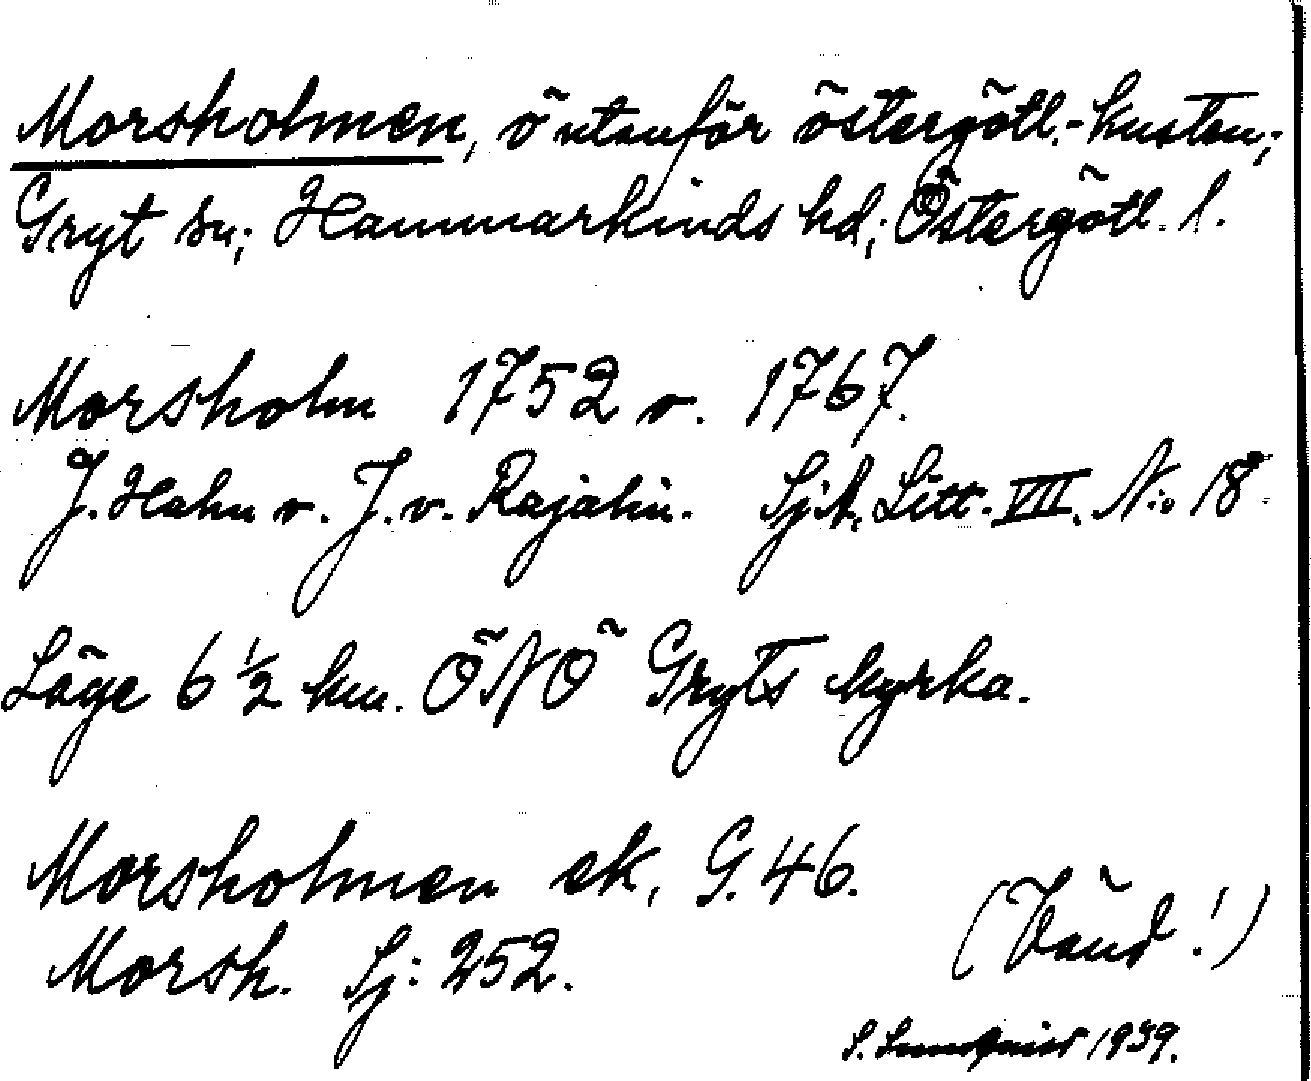 Morsholmen, ö utanför östergötl.-kusten;
Gryt sn; Hammarkinds hd; Östergötl. l.
Morsholm 1752 o. 1767.
J. Hahn o. J. v. Rajalin. Sj.A. Litt. VII. N:o 18.
Läge 6 1/2 km. ÖNÖ Gryts kyrka.
Morsholmen ek. G. 46.
Morsh. Sj: 252.
(Vänd!)
S. Sundqvist 1939.